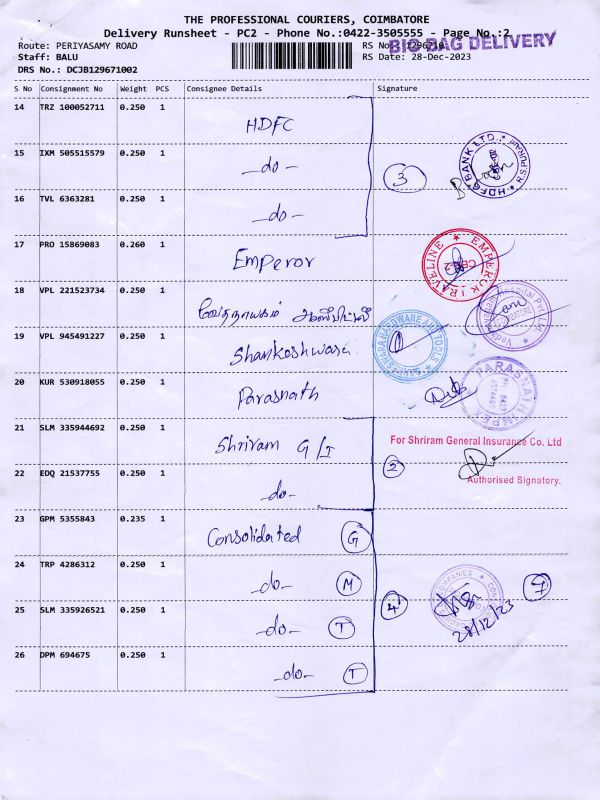 THE PROFESSIONAL COURIERS, COIMBATORE
Delivery Runsheet - PC2 - Phone No.:0422-3505555 - Page No.:2
BIG BAG DELIVERY
Route: PERIYASAMY ROAD
RS No.: 1296710
Staff: BALU
RS Date: 28-Dec-2023
DRS No.: DCJB129671002
S No Consignment No Weight PCS Consignee Details Signature
14 TRZ 100052711 0.250 1 HDFC
15 IXM 505515579 0.250 1 -do- 3
HDFC BANK LTD., R.S.PURAM
16 TVL 6363281 0.250 1 -do-
17 PRO 15869083 0.260 1 Emperor
EMPEROR TRAVELINE
18 VPL 221523734 0.250 1 வேதநாயகம்
Hospital Pvt. Ltd
19 VPL 945491227 0.250 1 Shankeshwara
HARDWARE AND TOOLS
20 KUR 530918055 0.250 1 Parasnath
PARASNATH IMPEX
21 SLM 335944692 0.250 1 Shriram G/I
For Shriram General Insurance Co. Ltd
22 EDQ 21537755 0.250 1 -do- 2
Authorised Signatory.
23 GPM 5355843 0.235 1 Consolidated G
24 TRP 4286312 0.250 1 -do- M
25 SLM 335926521 0.250 1 -do- T 4
28/12/23
26 DPM 694675 0.250 1 -do- T